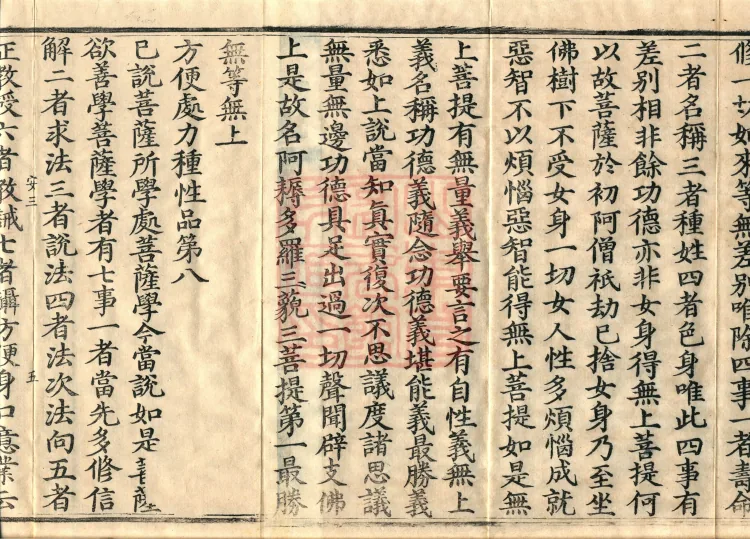 修一切如來等無差別唯除四事一者壽命
二者名稱三者種姓四者色身唯此四事有
差別相非餘功德亦非女身得無上菩提何
以故菩薩於初阿僧祇劫已捨女身乃至坐
佛樹下不受女身一切女人性多煩惱成就
惡智不以煩惱惡智能得無上菩提如是無
上菩提有無量義舉要言之有自性義無上
義名稱功德義隨念功德義堪能義最勝義
悉如上說當知真實復次不思議度諸思議
無量無邊功德具足出過一切聲聞辟支佛
上是故名阿耨多羅三藐三菩提第一最勝
無等無上
方便處力種性品第八
已說菩薩所學處菩薩學今當說如是菩薩
欲善學菩薩學者有七事一者當先多修信
解二者求法三者說法四者法次法向五者
安三
五
正教授六者教誡七者攝方便身口意業云